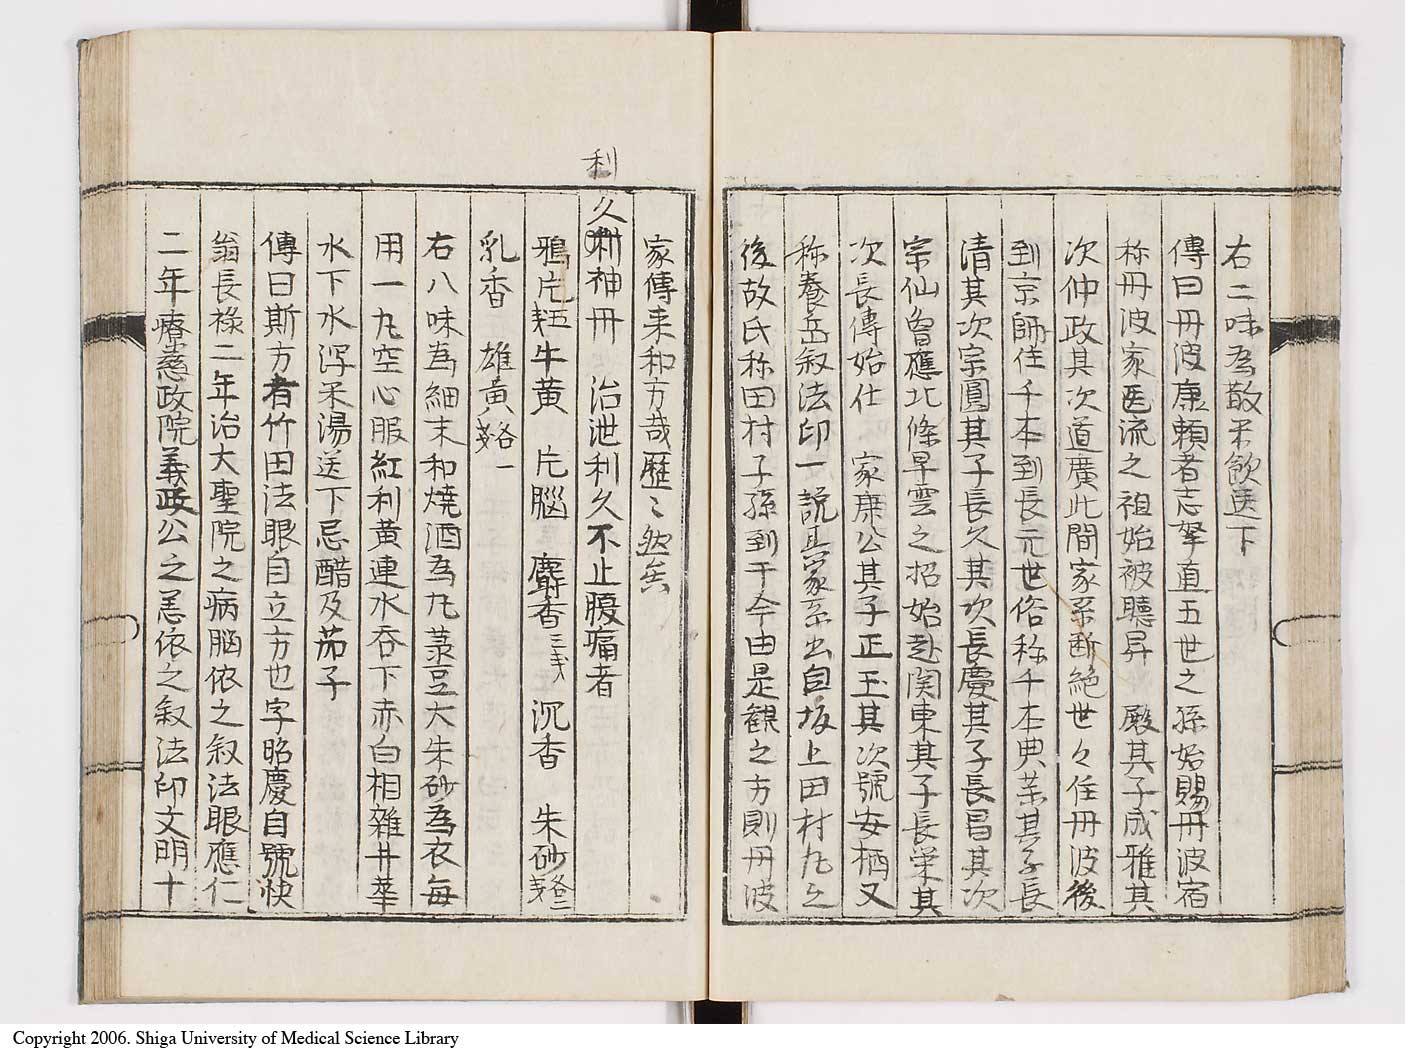 右二味為散米飲送下
傳曰丹波康頼者志拏直五世之孫始賜丹波宿
称丹波家医流之祖始被聴昇 殿其子成雅其
次仲政其次道廣此間家系断絶世々住丹波後
到京師住千本到長元世俗称千本典薬其子長
清其次宗圓其子長久其次長慶其子長昌其次
宗仙曾應北條早雲之招始赴関東其子長栄其
次長傳始仕 家康公其子正玉其次號安栖又
称養岳叙法印一説其家系出自坂上田村丸之
後故氏称田村子孫到于今由是観之方則丹波
家傳来和方哉歴々然矣
利
久利神丹 治泄利久不止腹痛者
鴉片五戔牛黄 片脳 麝香三戔 沉香 朱砂各二戔
乳香 雄黄各一戔
右八味為細末和焼酒為丸菉豆大朱砂為衣毎
用一丸空心服紅利黄連水呑下赤白相雜井華
水下水泻米湯送下忌醋及茄子
傳曰斯方者竹田法眼自立方也字昭慶自號快
翁長禄二年治大聖院之病脳依之叙法眼應仁
二年療慈政院義政公之恙依之叙法印文明十
Copyright 2006. Shiga University of Medical Science Library